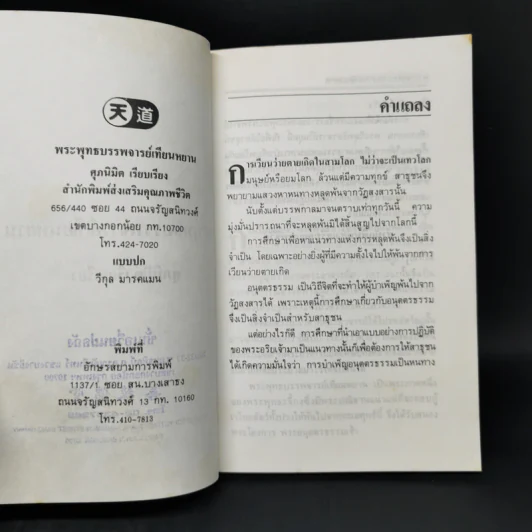 天道
พระพุทธบรรพจารย์เทียนหยาน
ศุภนิมิต เรียบเรียง
สำนักพิมพ์ส่งเสริมคุณภาพชีวิต
656/440 ซอย 44 ถนนจรัญสนิทวงศ์
เขตบางกอกน้อย กท.10700
โทร.424-7020
แบบปก
วีกุล มารคแมน
พิมพ์ที่
อักษรสยามการพิมพ์
1137/1 ซอย สน.บางเสาธง
ถนนจรัญสนิทวงศ์ 13 กท. 10160
โทร.410-7813
คำแถลง
การเวียนว่ายตายเกิดในสามโลก ไม่ว่าจะเป็นเทวโลก
มนุษย์หรือยมโลก ล้วนแต่มีความทุกข์ สาธุชนจึง
พยายามแสวงหาหนทางหลุดพ้นจากวัฏสงสารนั้น
นับตั้งแต่บรรพกาลมาจนตราบเท่าทุกวันนี้ ความ
มุ่งมั่นปรารถนาที่จะหลุดพ้นมิได้สิ้นสูญไปจากโลกนี้
การศึกษาเพื่อหาแนวทางแห่งการหลุดพ้นจึงเป็นสิ่ง
จำเป็น โดยเฉพาะอย่างยิ่งผู้ที่มีความตั้งใจไปให้พ้นจากการ
เวียนว่ายตายเกิด
อนุตตรธรรม เป็นวิถีจิตที่จะทำให้ผู้บำเพ็ญพ้นไปจาก
วัฏสงสารได้ เพราะเหตุนี้การศึกษาเกี่ยวกับอนุตตรธรรม
จึงเป็นสิ่งจำเป็นสำหรับสาธุชน
แต่อย่างไรก็ดี การศึกษาที่นำเอาแบบอย่างการปฏิบัติ
ของพระอริยเจ้ามาเป็นแนวทางนั้นก็เพื่อต้องการให้สาธุชน
ได้เกิดความมั่นใจว่า การบำเพ็ญอนุตตรธรรมเป็นหนทาง